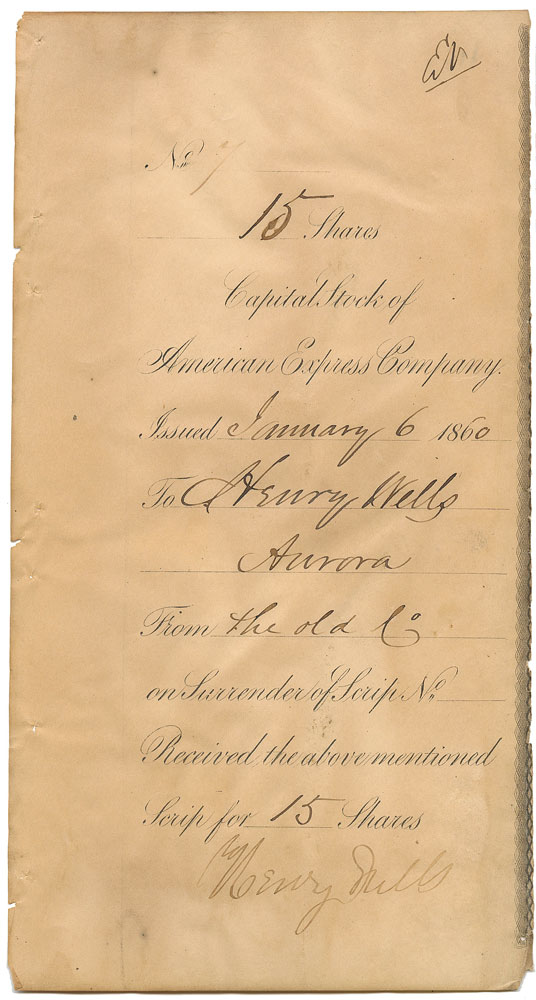 No. 7
15 Shares
Capital Stock of
American Express Company.
Issued January 6 1860
To Henry Wells
Aurora
From the old Co
on Surrender of Scrip No.
Received the above mentioned
Scrip for 15 Shares
Henry Wells